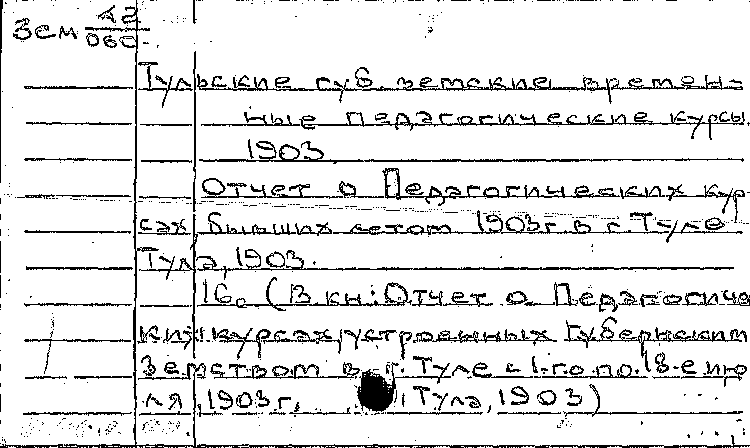 Зем 42
060-
Тульские губ. земские времен-
ные педагогические курсы.
1903.
Отчет о Педагогических кур-
сах бывших летом 1903г. в г. Туле
Тула, 1903.
16. (В кн.: Отчет о Педагогичес
ких курсах, устроенных Губернским
Земством в г. Туле с 1-го по 18-е ию
ля, 1903г., Тула, 1903)